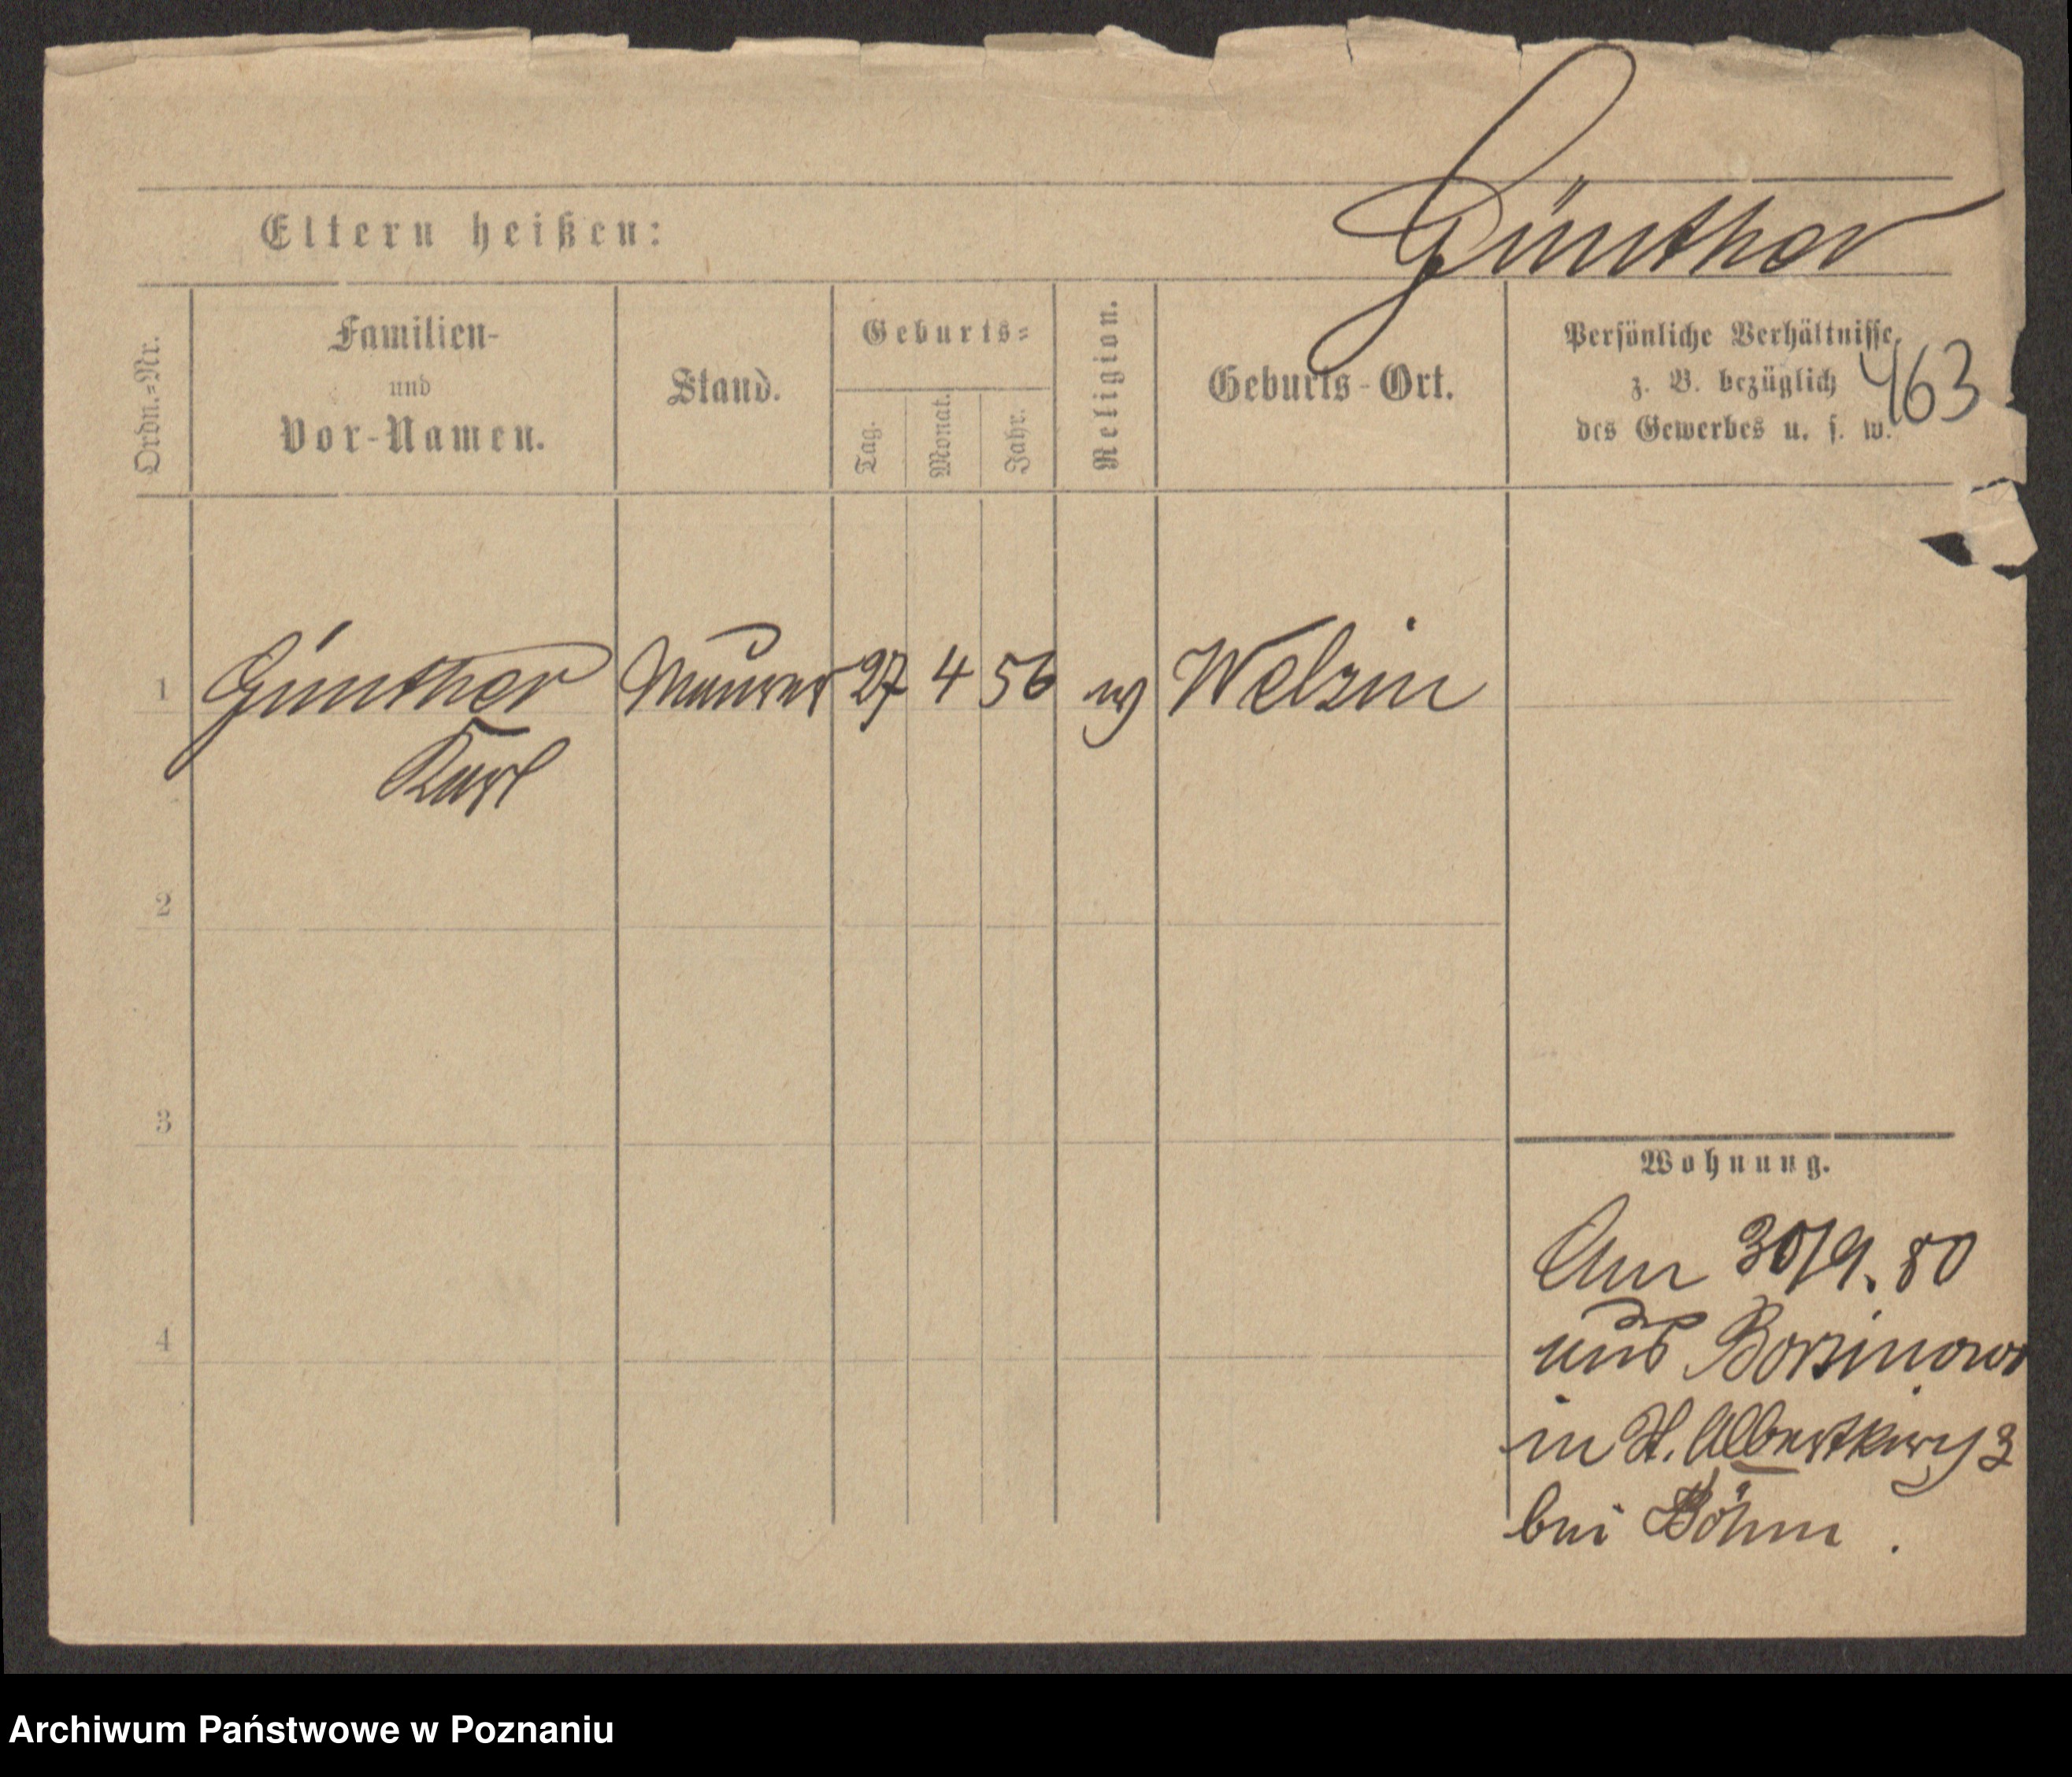 Günther
Eltern heißen:
Ordn.=Nr.
Familien-
und
Vor-Namen.
Stand.
Geburts=
Tag.
Monat.
Jahr.
Religion.
Geburts-Ort.
Persönliche Verhältnisse,
z. B. bezüglich
des Gewerbes u. s. w.
463
1 Günther Maurer 27 4 56 ev Welzin
Karl
2
3
4
Wohnung.
Am 30/9. 80
aus Borzinowo
in H. 3
bei Böhm.
Archiwum Państwowe w Poznaniu